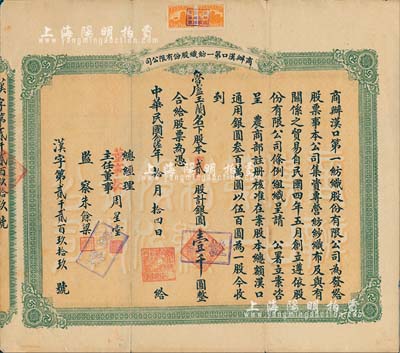 上海陽明拍賣
商辦漢口第一紡織股份有限公司
商辦漢口第一紡織股份有限公司為發給
股票事本公司集資專營紡紗織布及與有
關係之貿易自民國四年五月創立遵依股
份有限公司條例組織呈請
公署立案咨
呈
農商部註冊核准在案股本總額漢口
通用銀圓叁百萬圓以伍百圓為一股今收
到
名下股本貳股計銀圓壹千圓整
合給股票為憑
總經理
主任董事
周星堂
監察朱餘梁
中華民國
年拾月拾四日
給
漢字第貳千貳百玖拾玖號
上海陽明拍賣